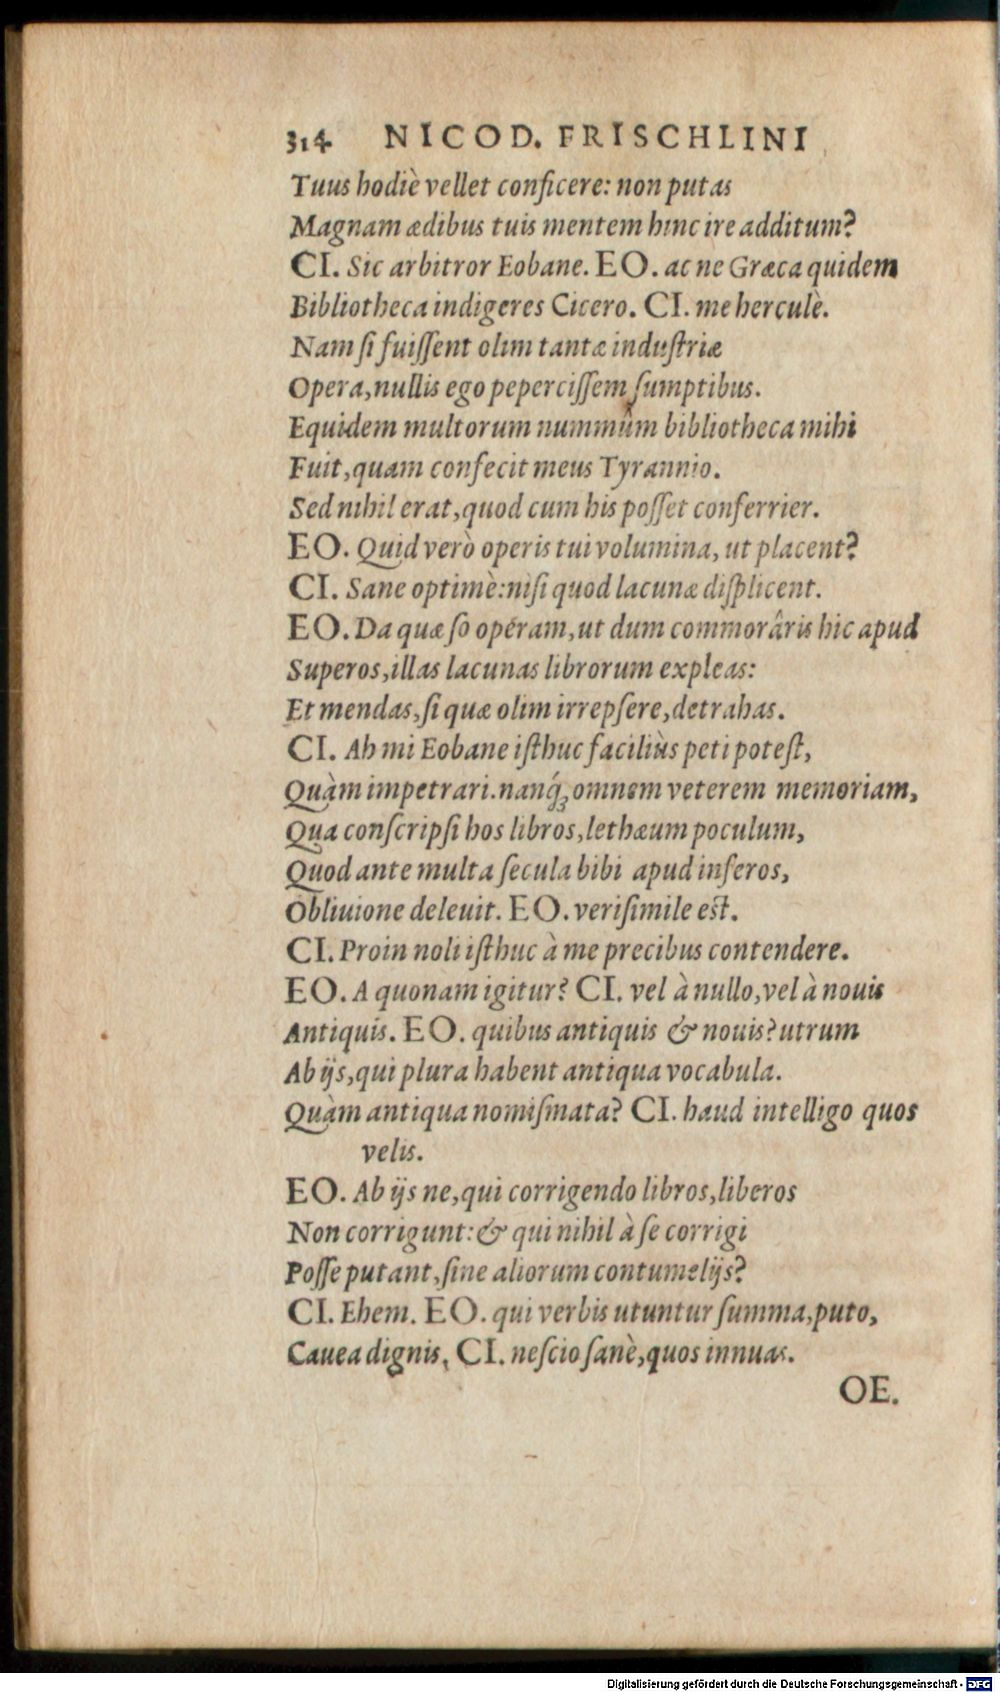 314 NICOD. FRISCHLINI
Tuus hodiè vellet conficere: non putas
Magnam ædibus tuis mentem hinc ire additum?
CI. Sic arbitror Eobane. EO. ac ne Græca quidem
Bibliotheca indigeres Cicero. CI. me herculè.
Nam ſi fuiſſent olim tantæ induſtriæ
Opera, nullis ego peperciſſem ſumptibus.
Equidem multorum nummûm bibliotheca mihi
Fuit, quam confecit meus Tyrannio.
Sed nihil erat, quod cum his poſſet conferrier.
EO. Quid verò operis tui volumina, ut placent?
CI. Sane optimè: niſi quod lacunæ diſplicent.
EO. Da quæſo opéram, ut dum commorâris hic apud
Superos, illas lacunas librorum expleas:
Et mendas, ſi quæ olim irrepſere, detrahas.
CI. Ah mi Eobane iſthuc faciliùs peti poteſt,
Quàm impetrari. nanq́ꝫ omnem veterem memoriam,
Qua conſcripſi hos libros, lethæum poculum,
Quod ante multa ſecula bibi apud inferos,
Obliuione deleuit. EO. veriſimile eſt.
CI. Proin noli iſthuc à me precibus contendere.
EO. A quonam igitur? CI. vel à nullo, vel à nouis
Antiquis. EO. quibus antiquis & nouis? utrum
Ab ijs, qui plura habent antiqua vocabula.
Quàm antiqua nomiſmata? CI. haud intelligo quos
velis.
EO. Ab ijs ne, qui corrigendo libros, liberos
Non corrigunt: & qui nihil à ſe corrigi
Poſſe putant, ſine aliorum contumelijs?
CI. Ehem. EO. qui verbis utuntur ſumma, puto,
Cauea dignis, CI. neſcio ſanè, quos innuas.
OE.
Digitalisierung gefördert durch die Deutsche Forschungsgemeinschaft - DFG